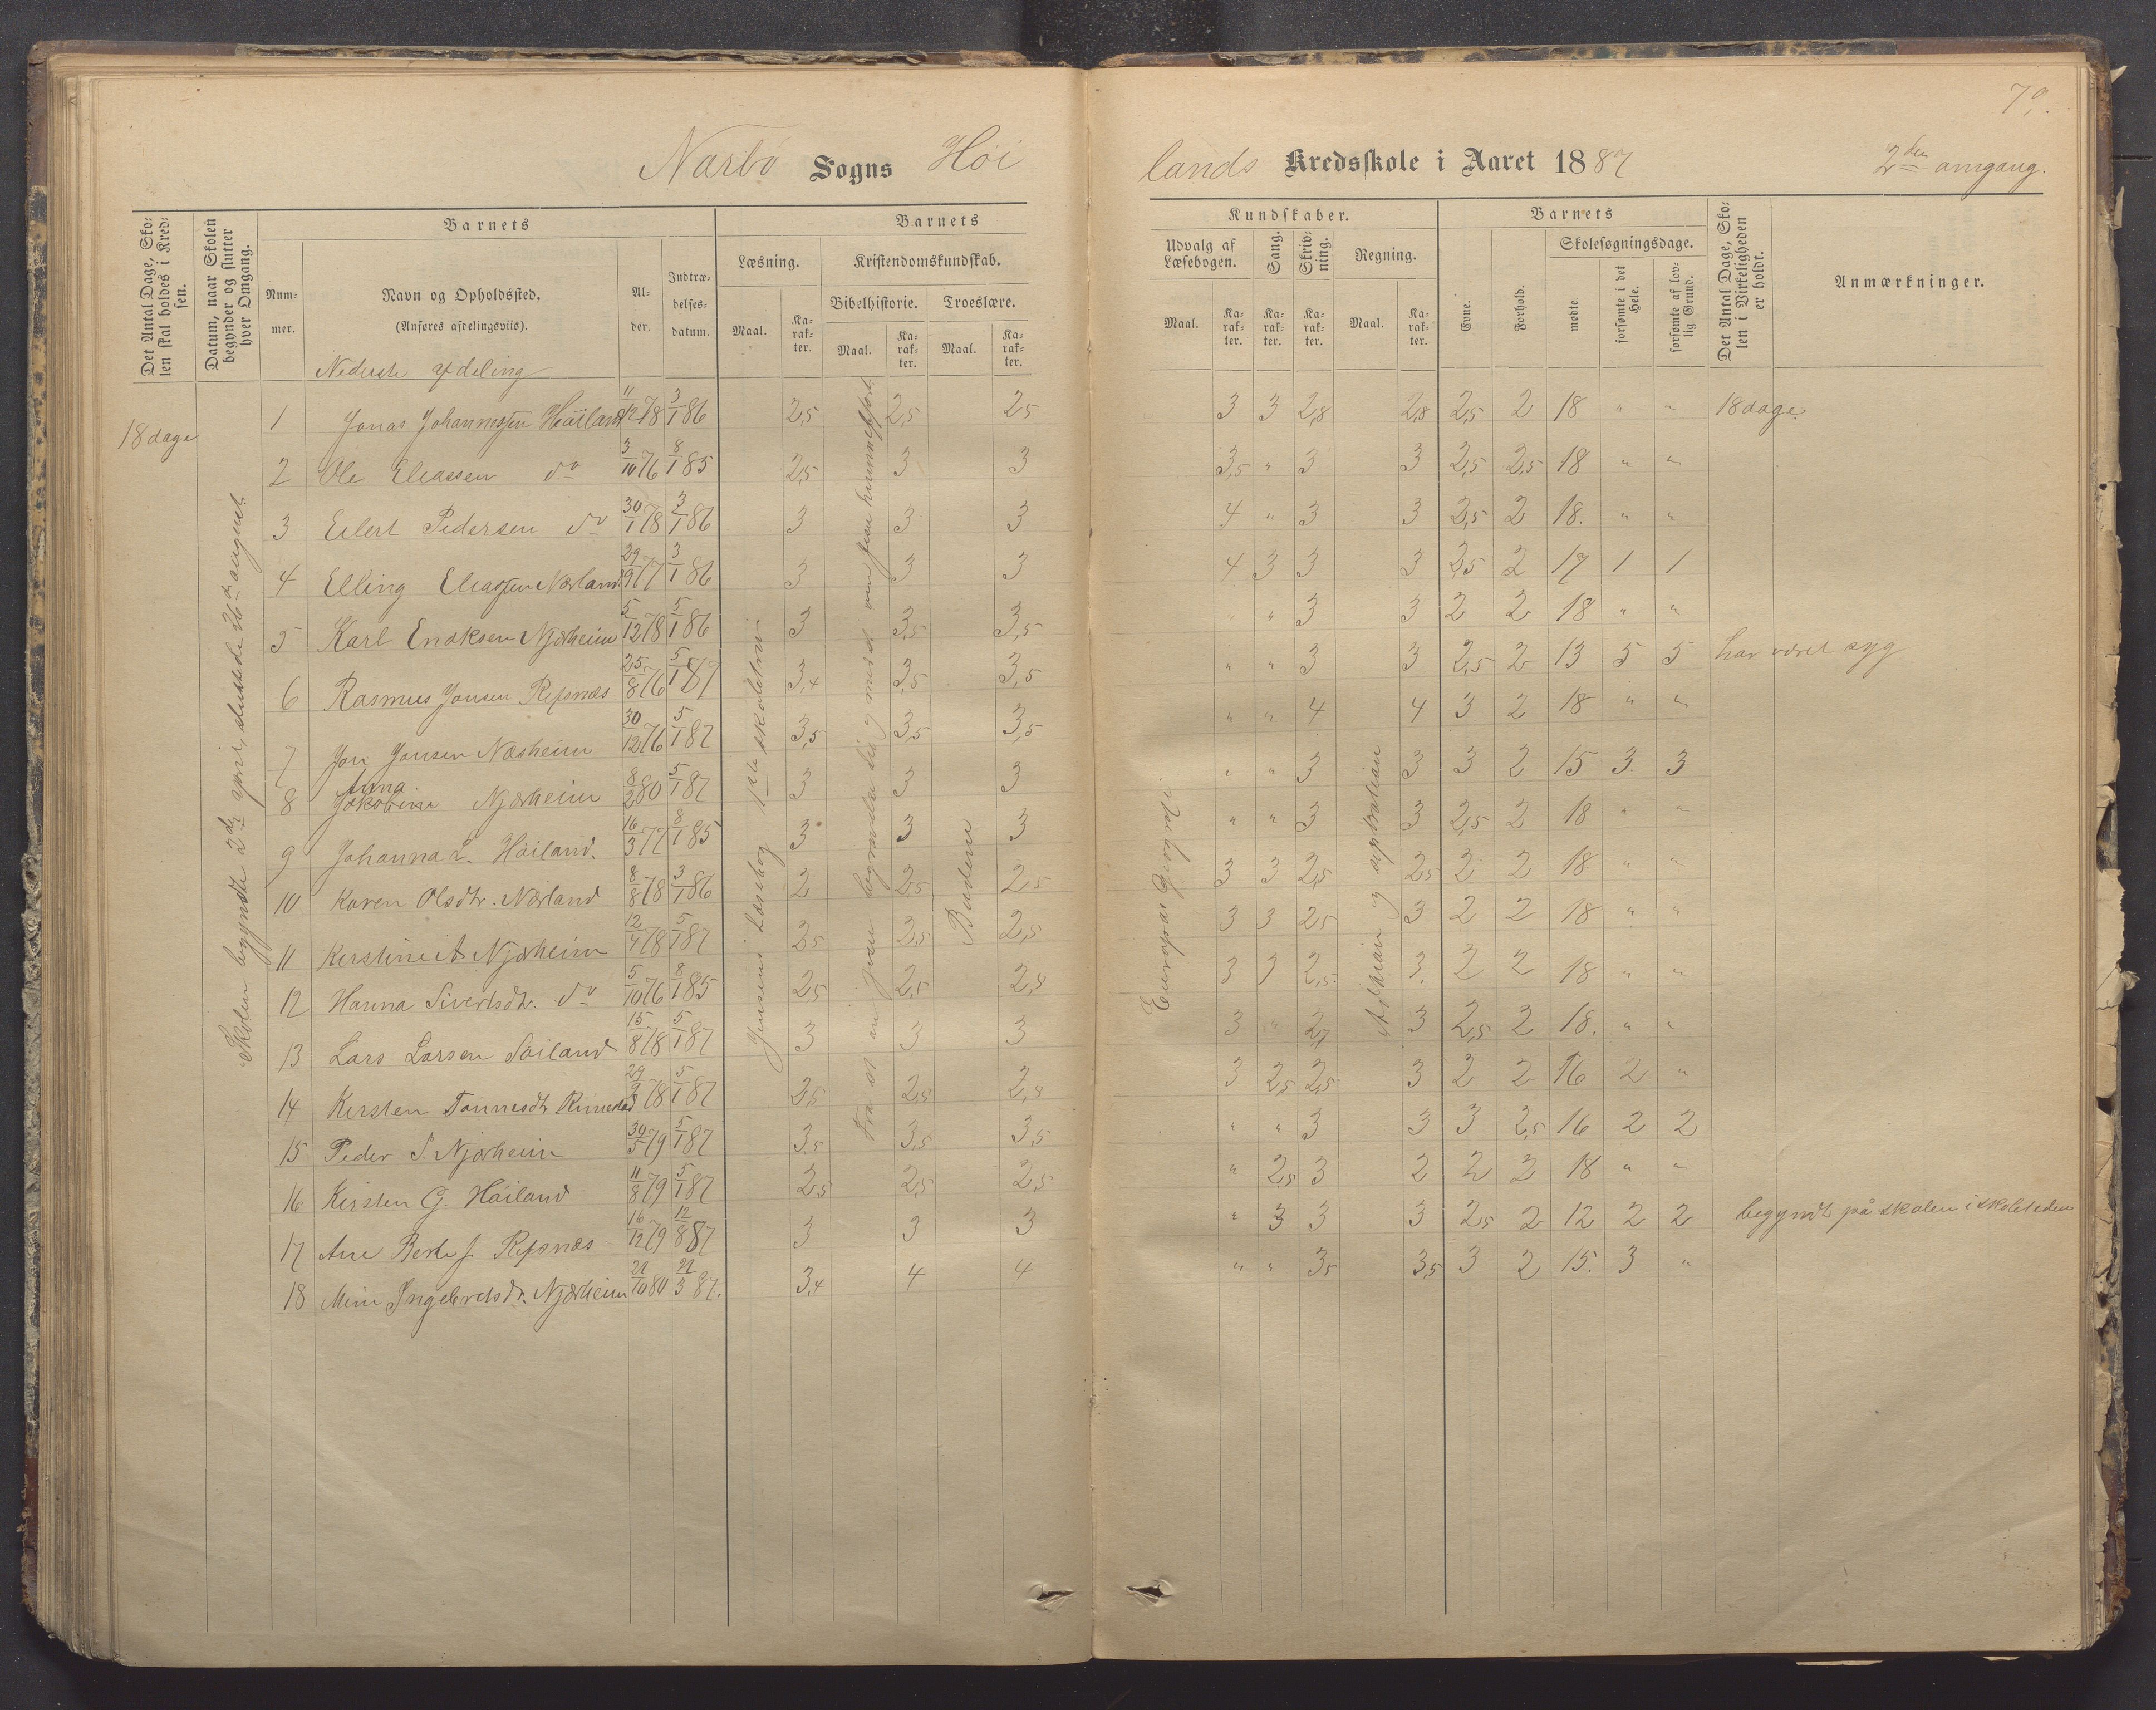 79.
Nærbø Sogns Høi
lands Kredsskole i Aaret 1887 2den omgang.
Det Antal Dage, Skolen skal holdes i Kredsen.
Datum, naar Skolen begynder og slutter hver Omgang.
Barnets
Nummer.
Navn og Opholdssted.
(Anføres afdelingsvis).
Alder.
Indtrædelsesdatum.
Barnets
Læsning.
Maal.
Karakter.
Kristendomskundskab.
Bibelhistorie.
Maal.
Karakter.
Troeslære.
Maal.
Karakter.
Kundskaber.
Udvalg af Læsebogen.
Maal.
Karakter.
Sang.
Karakter.
Skrivning.
Karakter.
Regning.
Maal.
Karakter.
Barnets
Evne.
Forhold.
Skolesøgningsdage.
mødte.
forsømte i det Hele.
forsømte af lovlig Grund.
Det Antal Dage, Skolen i Virkeligheden er holdt.
Anmærkninger.
Nederste afdeling
18 dage
Skolen begyndte 2den april, sluttede 26de august.
Jensens Læsebog 1ste skoletrin
Budene
Europas Geografi
1 Jonas Johannessen Høiland 11/12 78 3/1 86 2,5 2,5 2,5 3 3 2,8 2,8 2,5 2 18 " " 18 dage.
2 Ole Eliassen do 3/10 76 8/1 85 2,5 3 3 3,5 " 3 3 2,5 2,5 18 " "
3 Eilert Pedersen do 30/1 78 3/1 86 3 3 3 4 " 3 3 2,5 2 18. " "
4 Elling Eliassen Nærland 29/9 77 3/1 86 3 3 3 4 3 3 3 2,5 2 17 1 1
5 Karl Enoksen Njærheim 5/12 78 5/1 86 3 3,5 3,5 " " 3 3 2 2 18 " "
6 Rasmus Jonsen Refsnæs 25/8 76 5/1 87 3,4 3,5 3,5 " " 3 3 2,5 2 13 5 5 har været syg
7 Jon Jonsen Næsheim 30/12 76 5/1 87 3,5 3,5 3,5 " " 4 4 3 2 18 " "
8 Anna Jakobine Njærheim 8/2 80 5/1 87 3 3 3 " " 3 3 3 2 15 3. 3
9 Johanna L. Høiland. 16/3 77 8/1 85 3 3 3 " " 3 3 2,5 2 18 " "
10 Karen Olsdtr. Nærland 8/8 78 3/1 86 2 2,5 2,5 3 3 2,5 2,5 2 2 18 " "
11 Kirstine A Njærheim 12/4 78 5/1 87 2,5 2,5 2,5 3 3 2,5 3 2 2 18 " "
12 Hanna Sivertsdtr. do 5/10 76 8/1 85 2,5 2,5 2,8 3 3 2,5. 3. 2 2 18 " "
13 Lars Larsen Søiland 15/8 78 5/1 87 3 3 3 3 " 2,7 3 2,5 2 18. " "
14 Kirsten Tønnesdtr. 29/9 78 5/1 87 2,5 2,5 2,8 3 2,5 2,5 3 2 2 16 2 "
15 Peder S. Njærheim 30/5 79 5/1 87 3,5 3,5 3,5 " " 3 3 3 2,5 16 2 2
16 Kirsten G. Høiland 11/8 79 5/1 87 2,5 2,5 2,5 " 2,5 3 2 2 2 18 " "
17 Ane Berte J. Refsnæs 16/12 79 12/8 87 3 3 3 " 3 3 3 2,5 2 12 2 2 begyndt på skolen i skoletiden
18 Mina Ingebretsdtr. Njærheim 21/10 80 21/3 87. 3,4 4 4 " " 3,5 3,5 3 2 15. 3 "